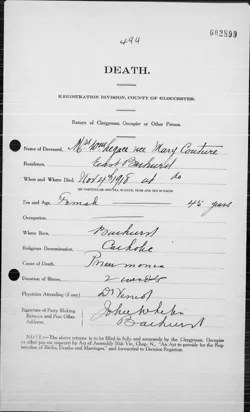 494
602899
DEATH.
REGISTRATION DIVISION, COUNTY OF GLOUCESTER.
Return of Clergyman, Occupier or Other Person.
Name of Deceased, Mrs Wm Legace nee Mary Couture
Residence, East Bathurst
When and Where Died, Nov 4th 1918 at do
Sex and Age, Female 45 years
Occupation,
Where Born, Bathurst
Religious Denomination, Catholic
Cause of Death, Pneumonia
Duration of Illness, 2 weeks
Physician Attending (if any) Dr
Signature of Party Making Return and Post Office Address, John Whelan
Bathurst
NOTE.—The above return is to be filled in fully and accurately by the Clergyman, Occupier or other person required by Act of Assembly 50th Vic, Chap. 5, "An Act to provide for the Registration of Births, Deaths and Marriages," and forwarded to Division Registrar.